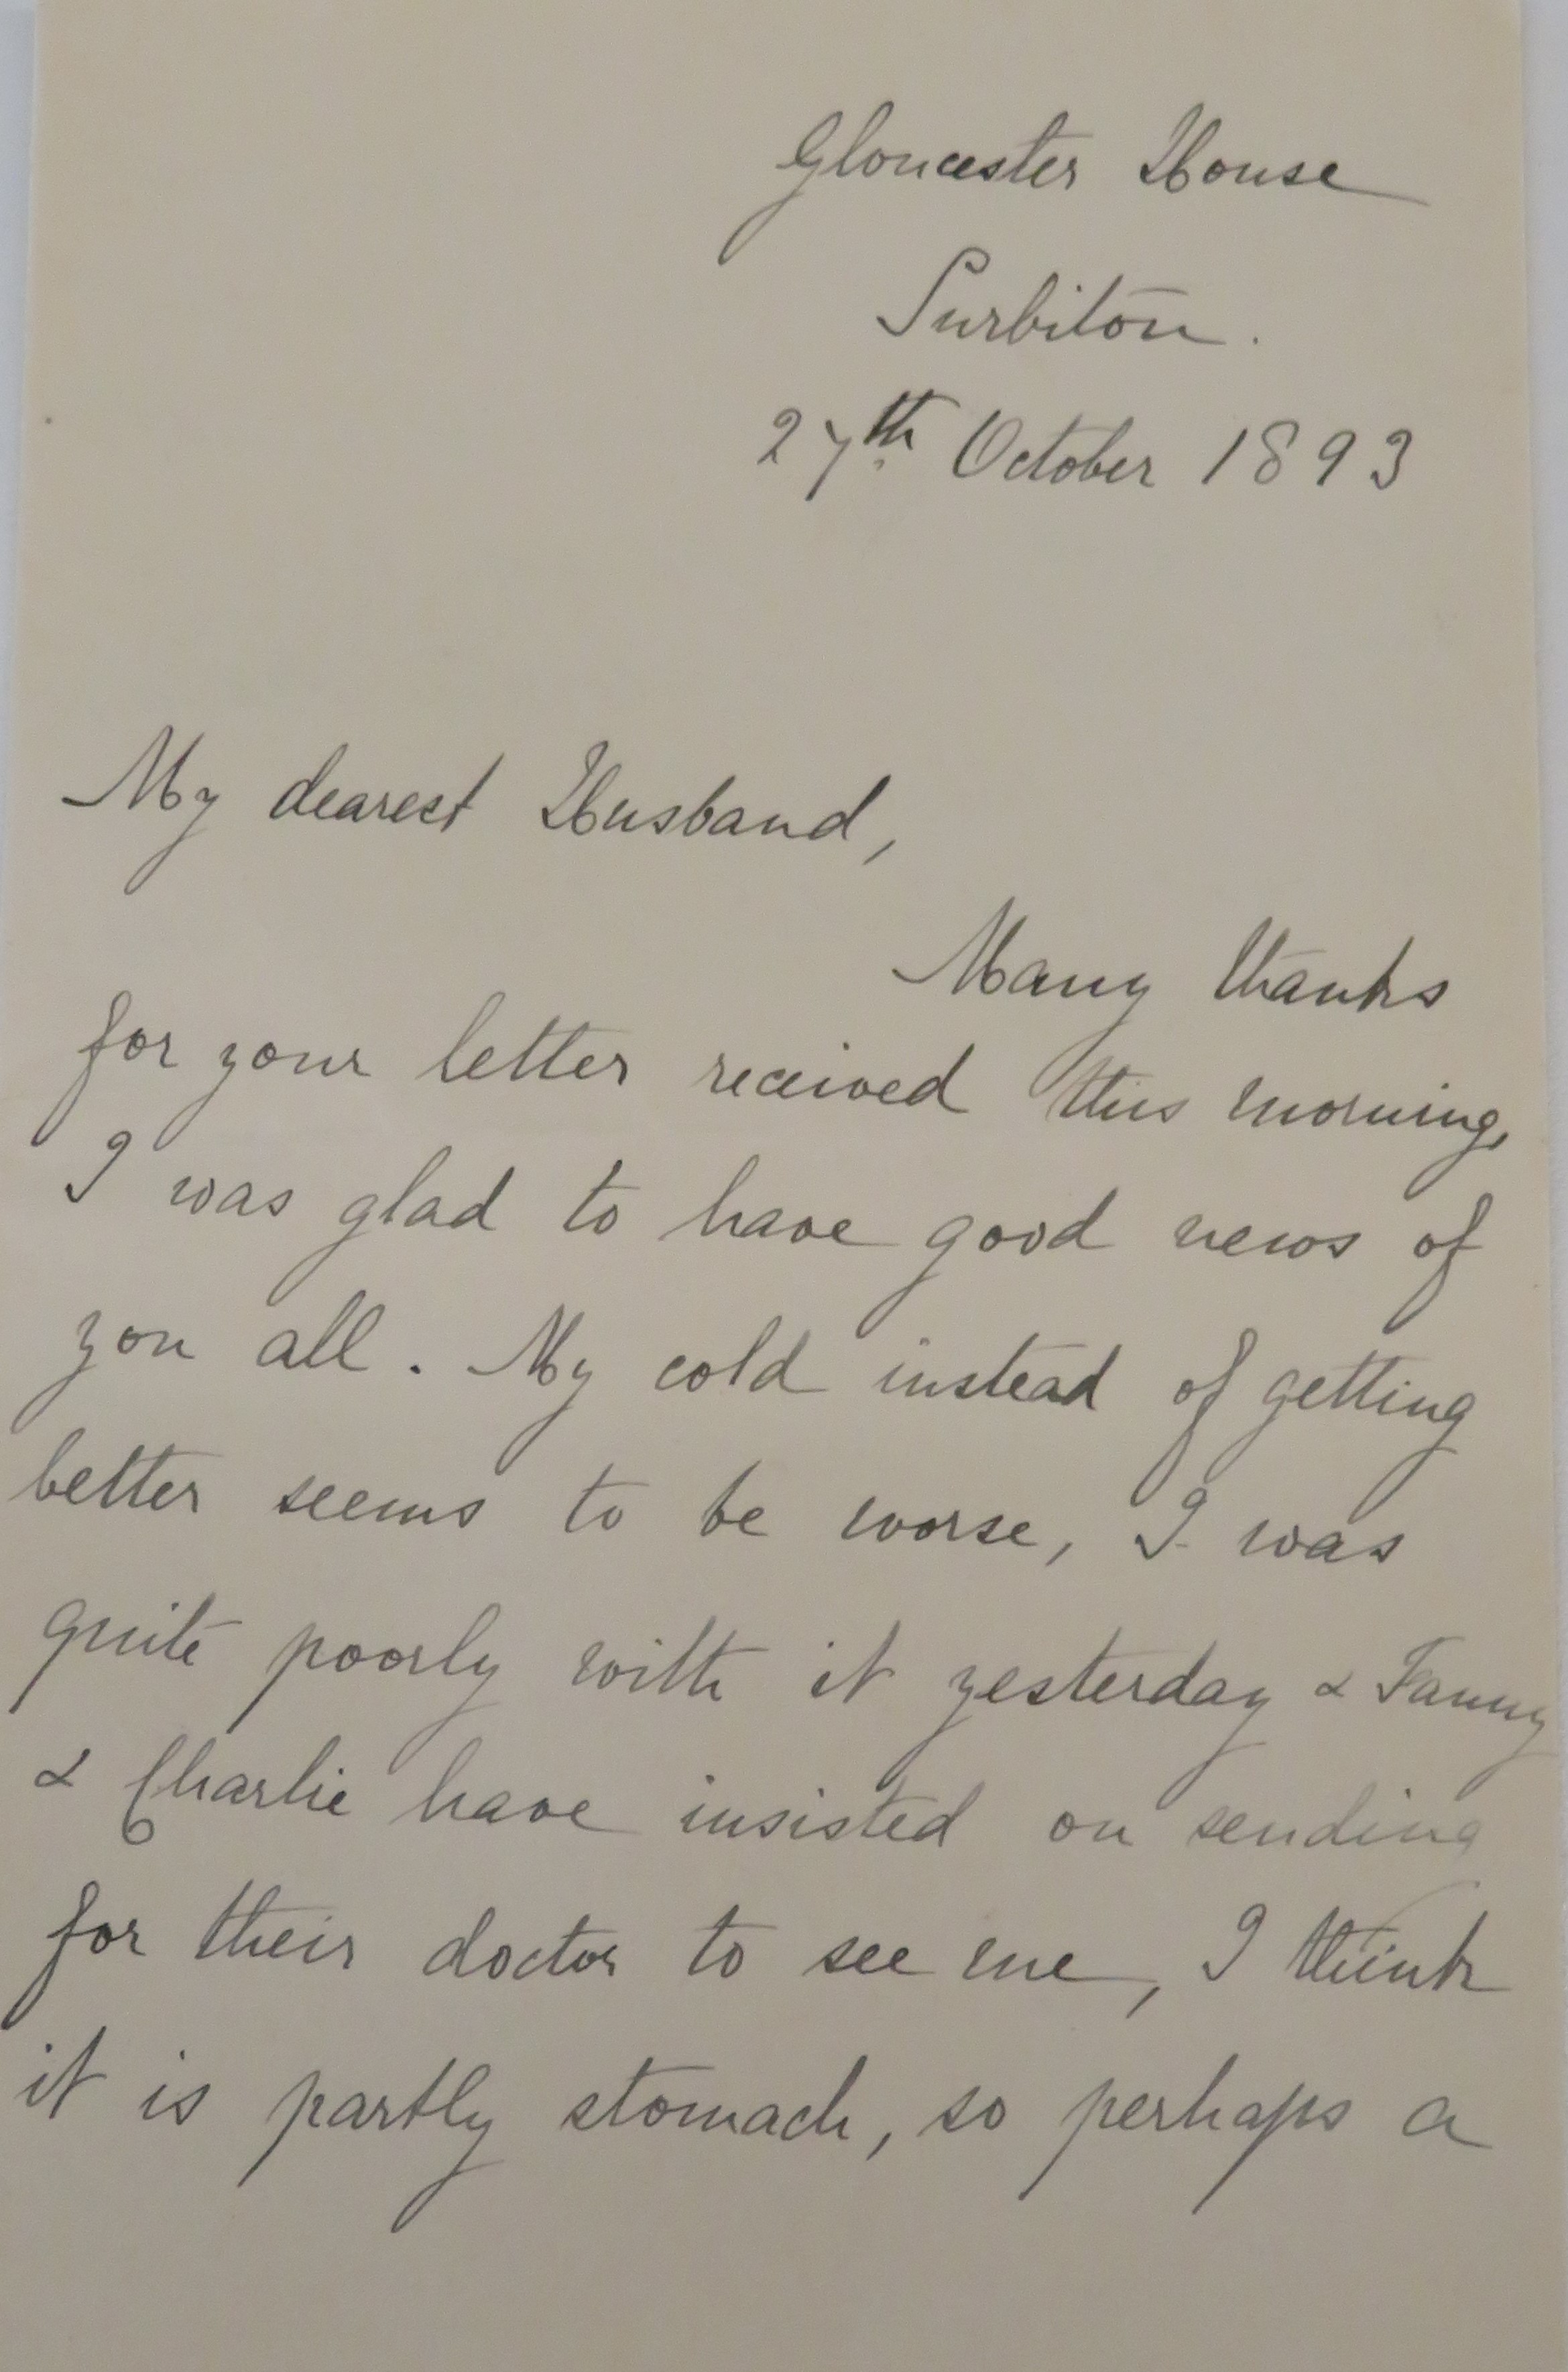 Gloucester House
Surbiton.
27th October 1893
My dearest Husband,
Many thanks
for your letter received this morning,
I was glad to have good news of
you all. My cold instead of getting
better seems to be worse, I was
quite poorly with it yesterday & Fanny
& Charlie have insisted on sending
for their doctor to see me, I think
it is partly stomach, so perhaps a